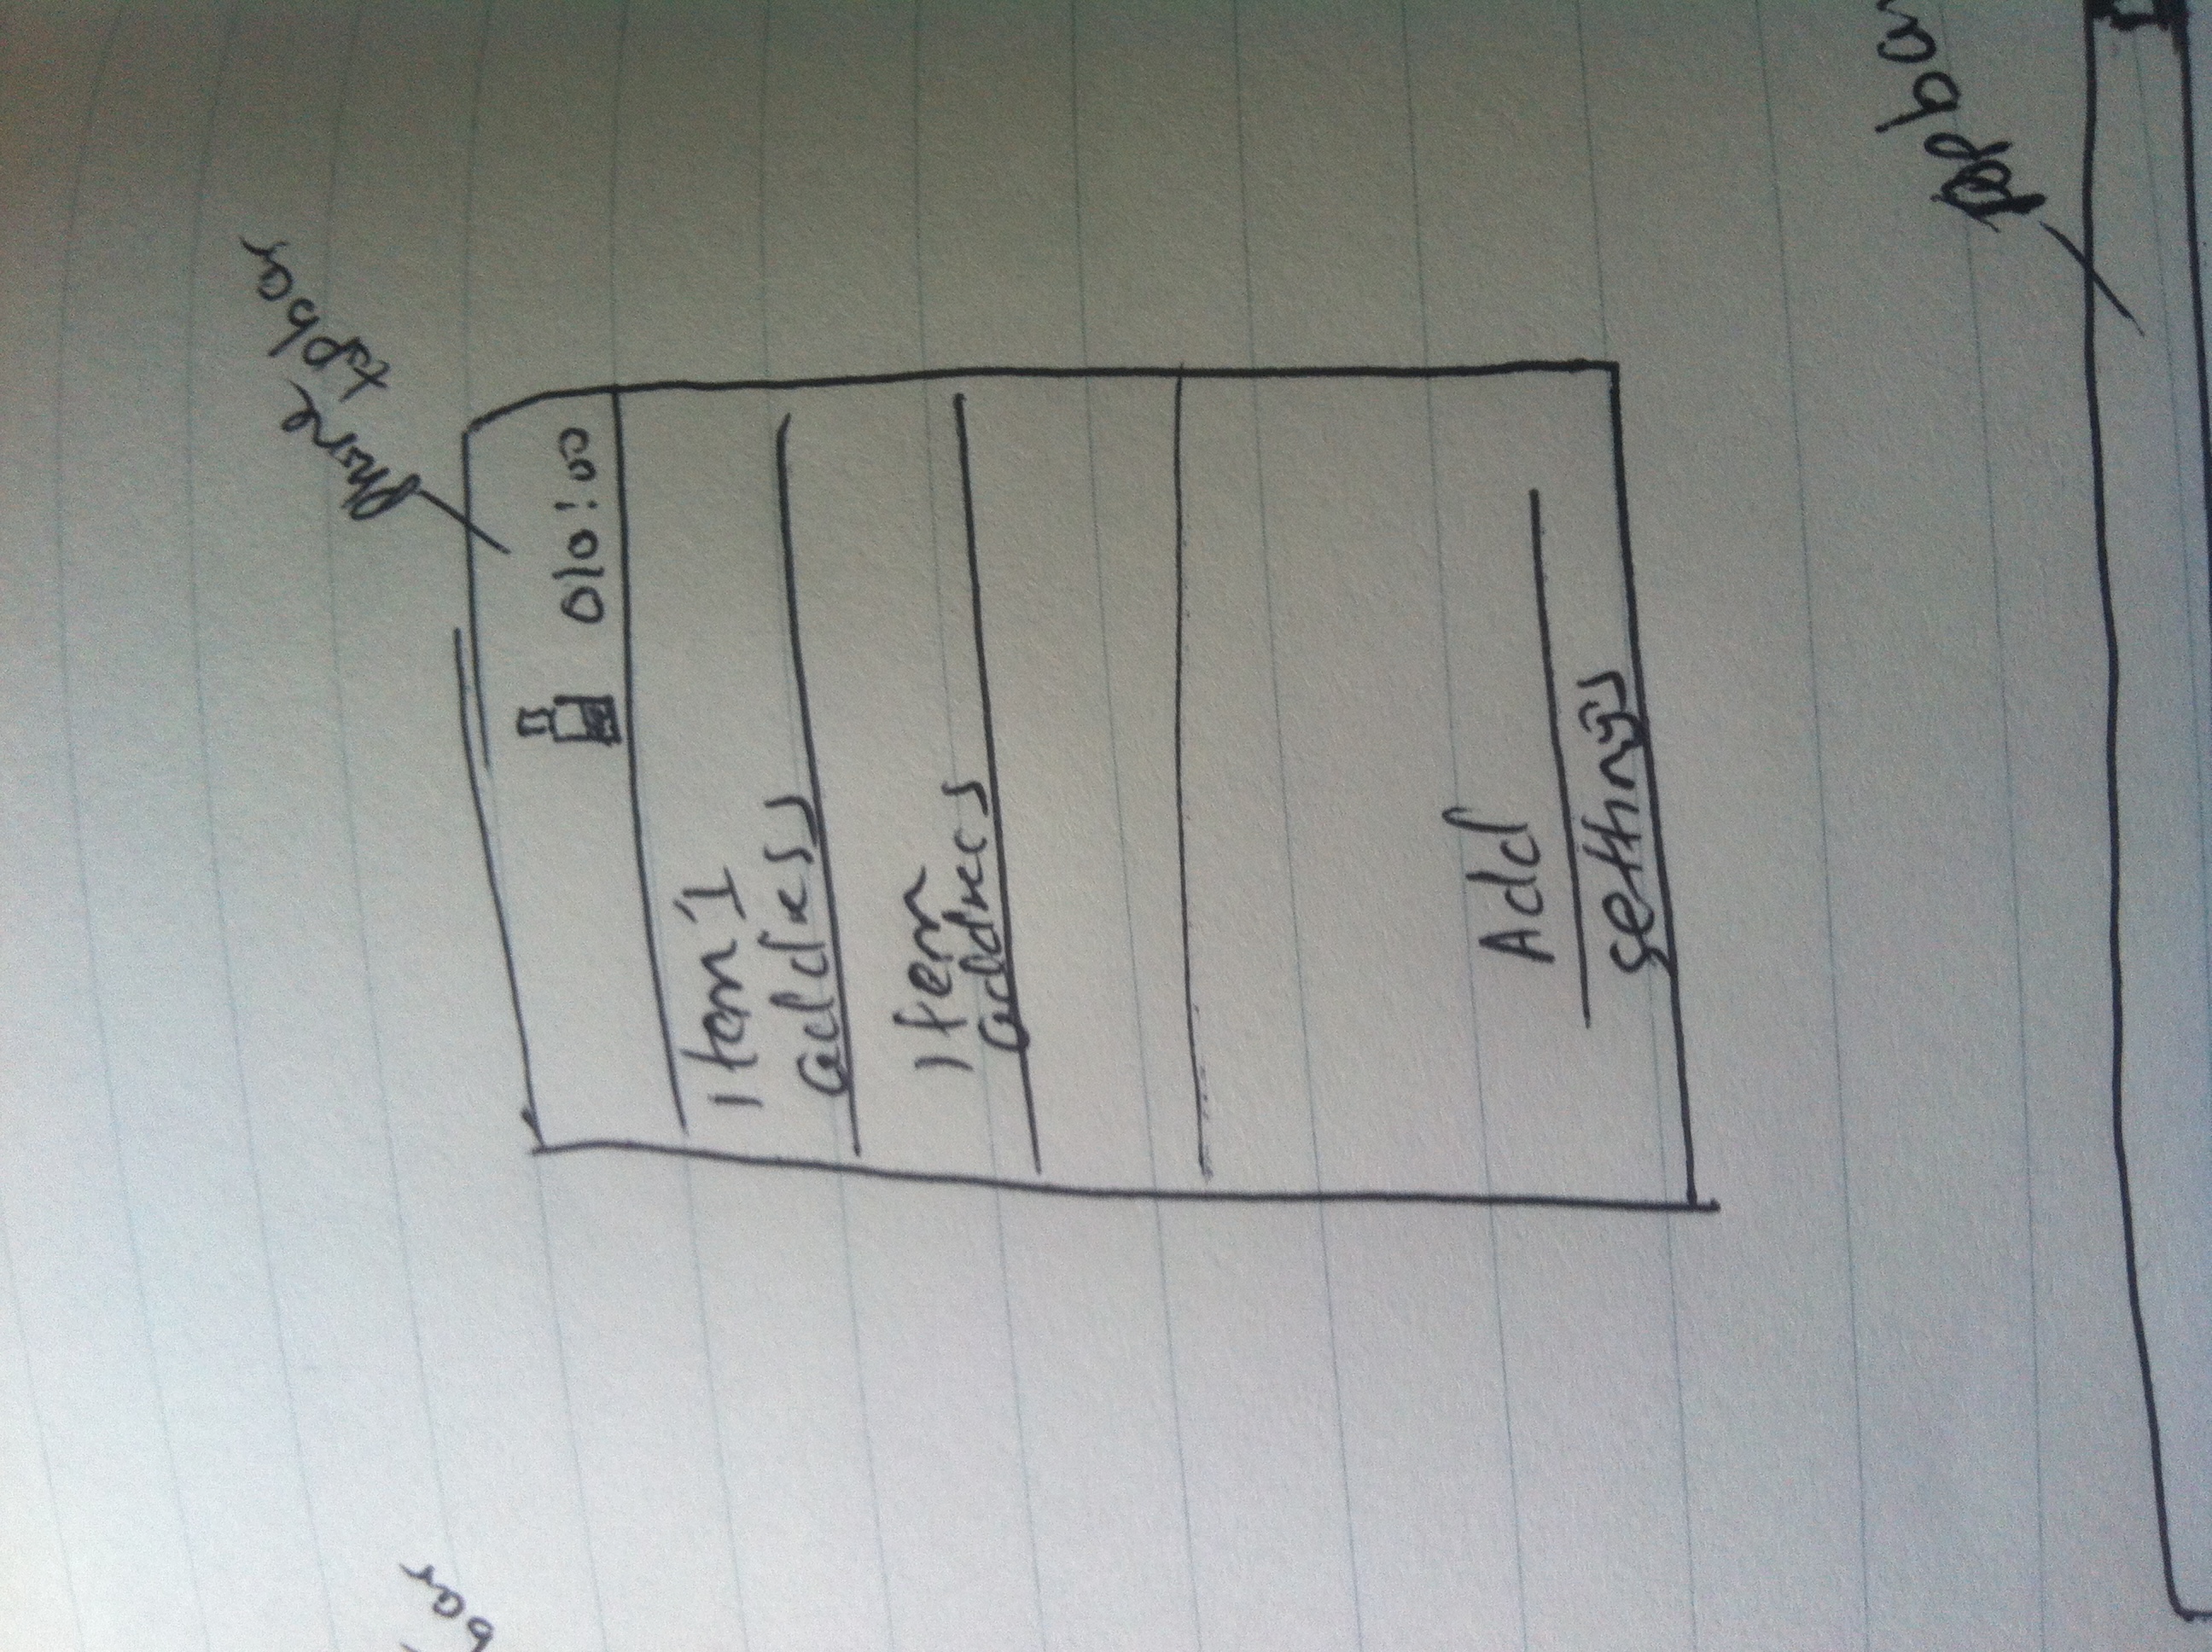 phone
topbar
bar
010:00
item 1
address
item
address
Add
settings
topba